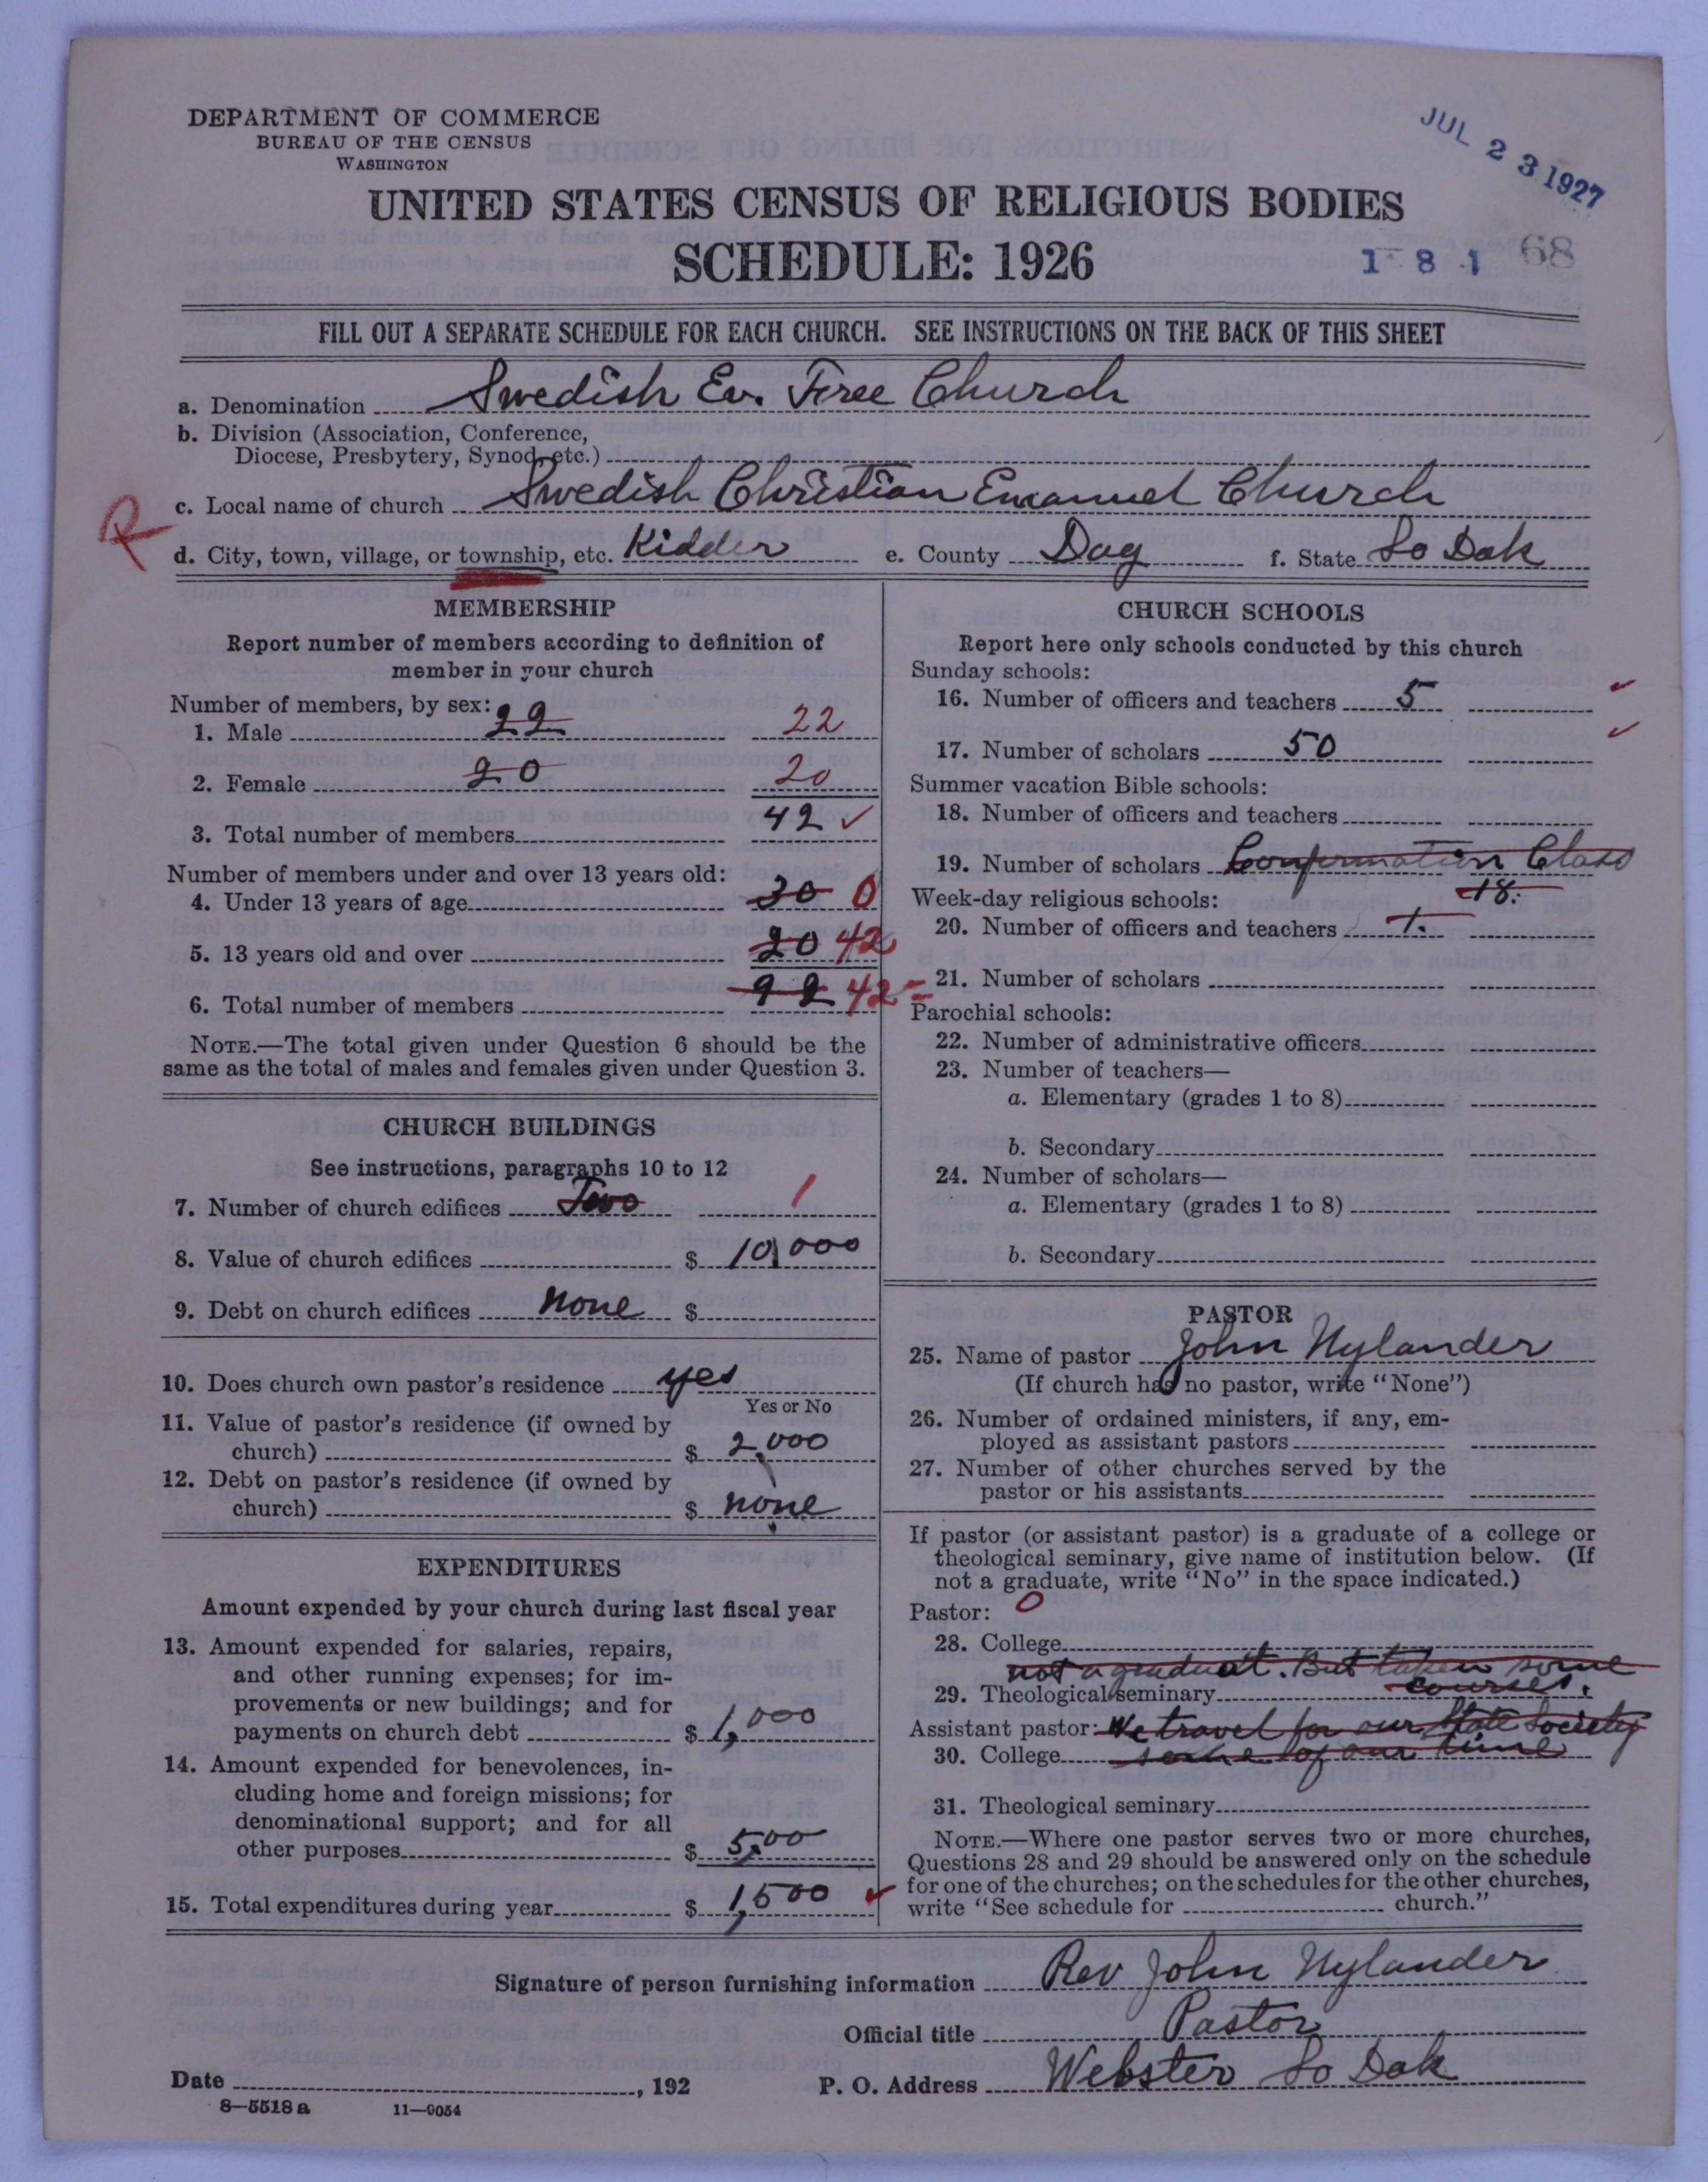 DEPARTMENT OF COMMERCE
BUREAU OF THE CENSUS
WASHINGTON
JUL 23 1927
UNITED STATES CENSUS OF RELIGIOUS BODIES
SCHEDULE: 1926
1 8 1 68
FILL OUT A SEPARATE SCHEDULE FOR EACH CHURCH. SEE INSTRUCTIONS ON THE BACK OF THIS SHEET
a. Denomination Swedish Ev. Free Church
b. Division (Association, Conference,
Diocese, Presbytery, Synod, etc.)
c. Local name of church Swedish Christian Emanuel Church
R
d. City, town, village, or township, etc. Kidder e. County Day f. State So Dak
MEMBERSHIP
Report number of members according to definition of
member in your church
Number of members, by sex:
1. Male 22 22
2. Female 20 20
3. Total number of members 42 ✓
Number of members under and over 13 years old:
4. Under 13 years of age 30 0
5. 13 years old and over 20 42
6. Total number of members 92 42=
NOTE.—The total given under Question 6 should be the
same as the total of males and females given under Question 3.
CHURCH BUILDINGS
See instructions, paragraphs 10 to 12
7. Number of church edifices Two 1
8. Value of church edifices $ 10,000
9. Debt on church edifices None $
10. Does church own pastor's residence yes
Yes or No
11. Value of pastor's residence (if owned by
church) $ 2,000
12. Debt on pastor's residence (if owned by
church) $ none
EXPENDITURES
Amount expended by your church during last fiscal year
13. Amount expended for salaries, repairs,
and other running expenses; for im-
provements or new buildings; and for
payments on church debt $ 1,000
14. Amount expended for benevolences, in-
cluding home and foreign missions; for
denominational support; and for all
other purposes $ 500
15. Total expenditures during year $ 1,500 ✓
CHURCH SCHOOLS
Report here only schools conducted by this church
Sunday schools:
16. Number of officers and teachers 5 ✓
17. Number of scholars 50 ✓
Summer vacation Bible schools:
18. Number of officers and teachers
19. Number of scholars Confirmation Class
18.
Week-day religious schools:
20. Number of officers and teachers 1.
21. Number of scholars
Parochial schools:
22. Number of administrative officers
23. Number of teachers—
a. Elementary (grades 1 to 8)
b. Secondary
24. Number of scholars—
a. Elementary (grades 1 to 8)
b. Secondary
PASTOR
25. Name of pastor John Nylander
(If church has no pastor, write "None")
26. Number of ordained ministers, if any, em-
ployed as assistant pastors
27. Number of other churches served by the
pastor or his assistants
If pastor (or assistant pastor) is a graduate of a college or
theological seminary, give name of institution below. (If
not a graduate, write "No" in the space indicated.)
Pastor: 0
28. College
not a graduat. But taken some
29. Theological seminary courses.
Assistant pastor: We travel for our State Society
30. College some of our time
31. Theological seminary
NOTE.—Where one pastor serves two or more churches,
Questions 28 and 29 should be answered only on the schedule
for one of the churches; on the schedules for the other churches,
write "See schedule for church."
Signature of person furnishing information Rev John Nylander
Official title Pastor
Date , 192 P. O. Address Webster So Dak
8—5518 a 11—9054